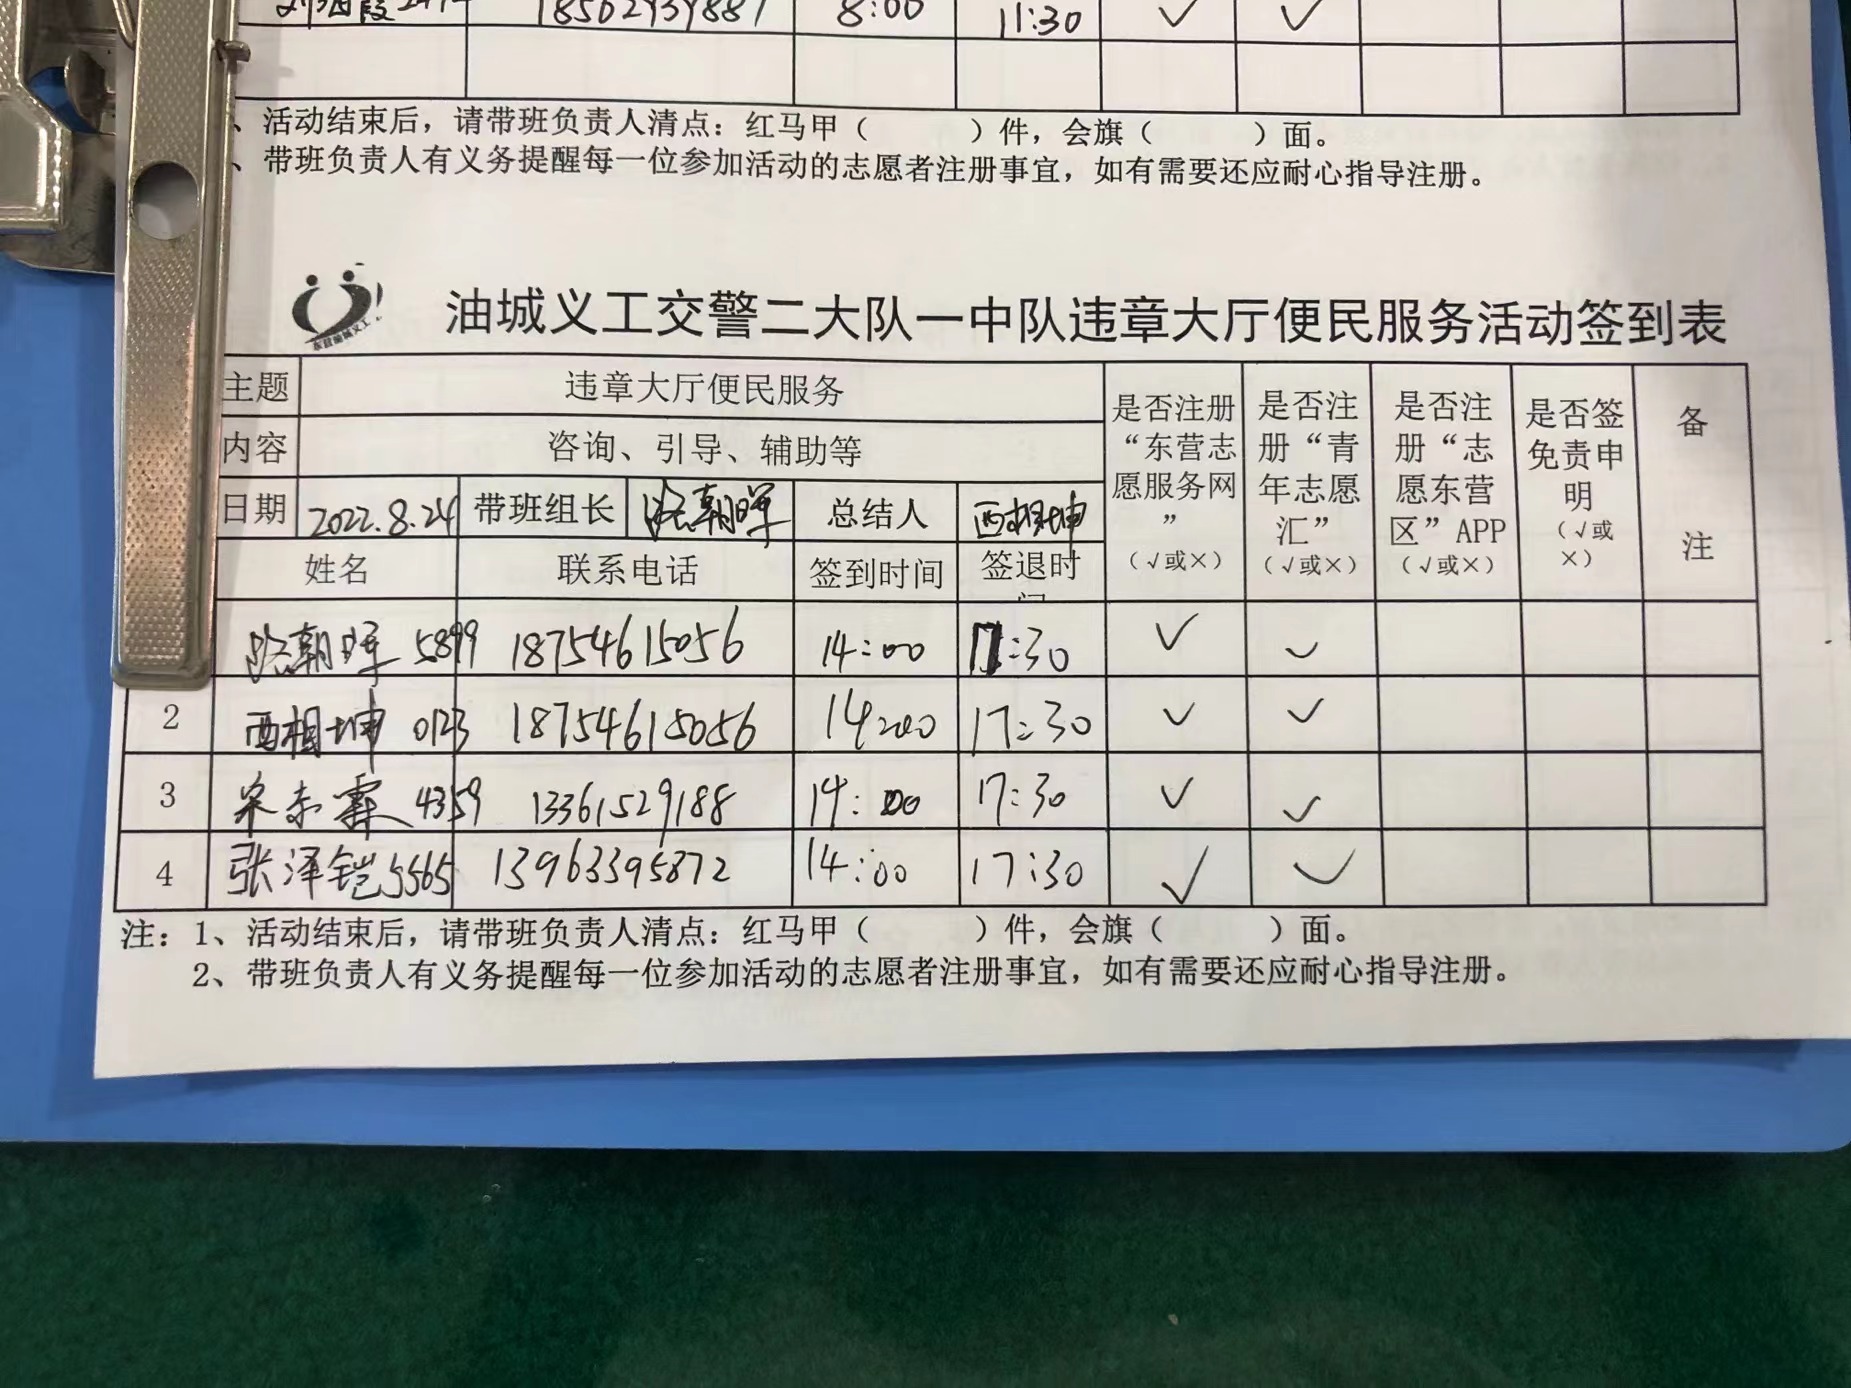 18562939887 8:00 11:30 √ √
、活动结束后，请带班负责人清点：红马甲（ ）件，会旗（ ）面。
、带班负责人有义务提醒每一位参加活动的志愿者注册事宜，如有需要还应耐心指导注册。
东营油城义工
油城义工交警二大队一中队违章大厅便民服务活动签到表
主题 违章大厅便民服务
内容 咨询、引导、辅助等
日期 2022.8.24 带班组长 朝晖 总结人 西相坤
姓名 联系电话 签到时间 签退时间
是否注册“东营志愿服务网”（√或×）
是否注册“青年志愿汇”（√或×）
是否注册“志愿东营区”APP（√或×）
是否签免责申明（√或×）
备注
朝晖 5899 18754615056 14:00 17:30 √ √
2 西相坤 0123 18754615056 14:00 17:30 √ √
3 4359 13361529188 14:00 17:30 √ √
4 张泽铠 5565 13963395872 14:00 17:30 √ √
注：1、活动结束后，请带班负责人清点：红马甲（ ）件，会旗（ ）面。
2、带班负责人有义务提醒每一位参加活动的志愿者注册事宜，如有需要还应耐心指导注册。